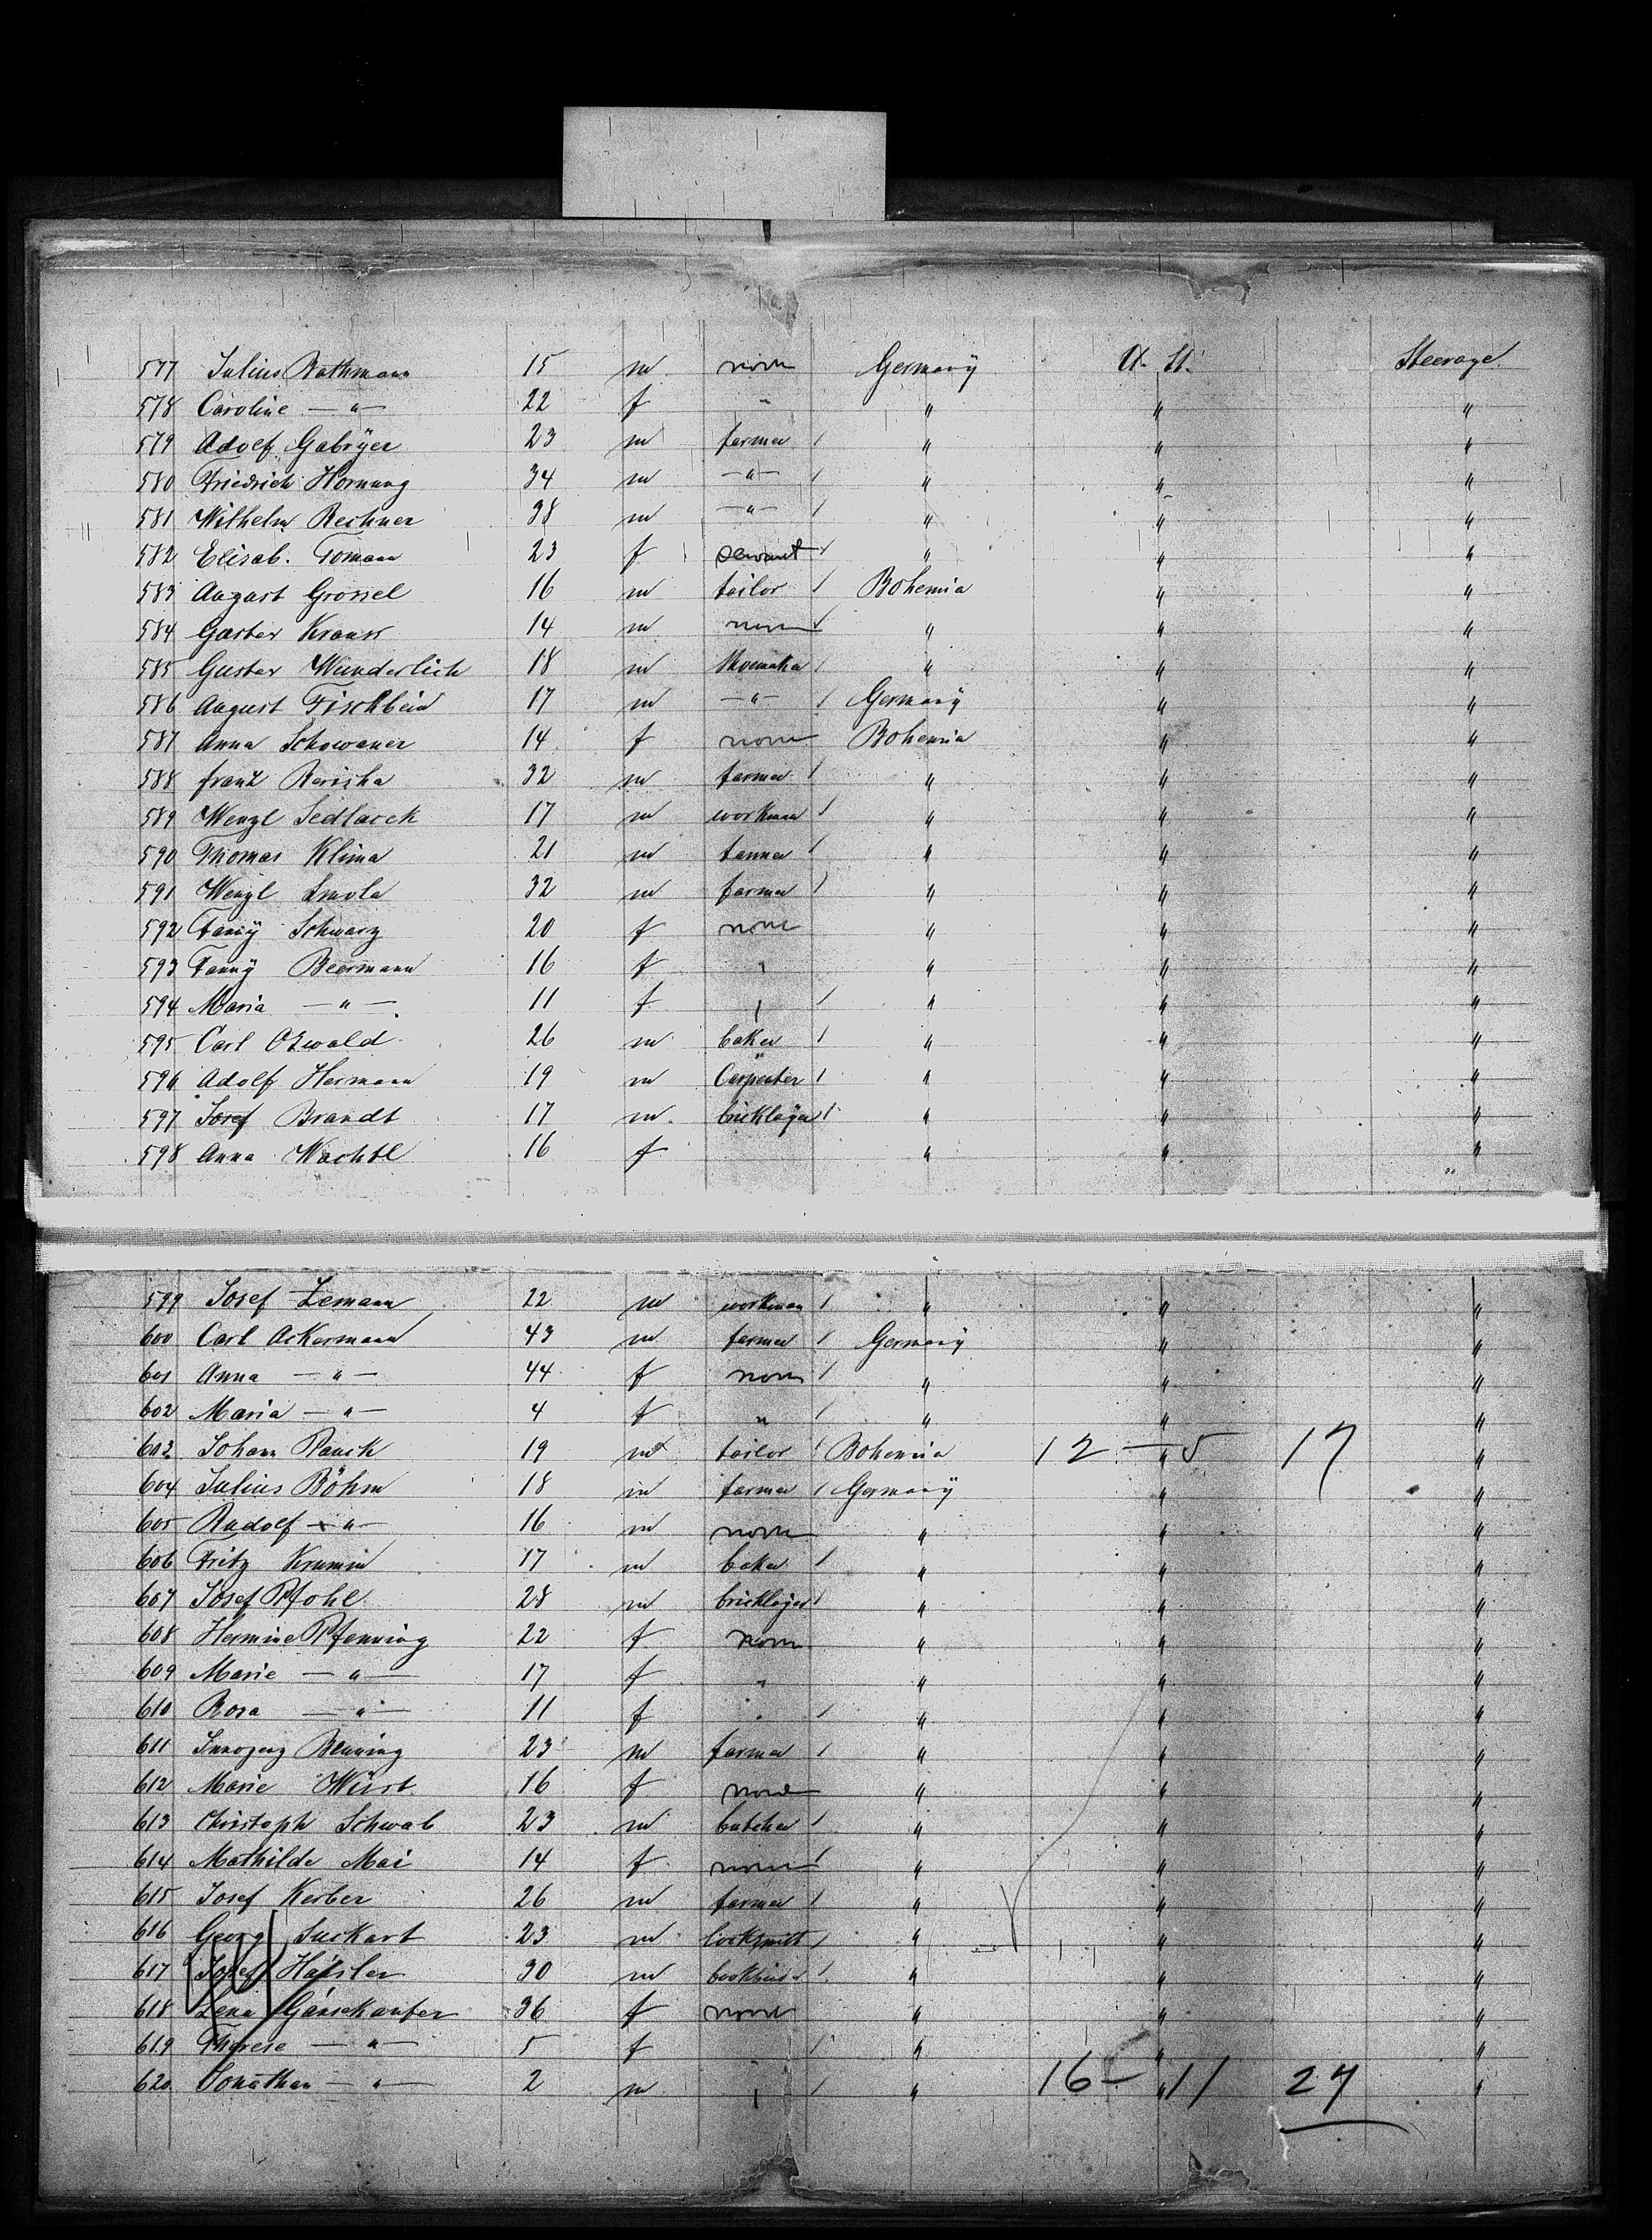 577 Julius Rathmann 15 m none Germany U. St. Steerage
578 Caroline — " — 22 f " " " "
579 Adolf Gabryer 23 m farmer / " " "
580 Friedrich Hornung 34 m — " — / " " "
581 Wilhelm Rechner 38 m — " — / " " "
582 Elisab. Tomann 23 f servant / " " "
583 August Grossel 16 m tailor / Bohemia " "
584 Gustav Krauss 14 m none / " " "
585 Gustav Wunderlich 18 m Shoemaker / " " "
586 August Fischbein 17 m — " — / Germany " "
587 Anna Schowaner 14 f none Bohemia " "
588 Franz Barisha 32 m farmer / " " "
589 Wenzl Sedlacek 17 m workman / " " "
590 Thomas Klima 21 m tanner / " " "
591 Wenzl Smola 32 m farmer / " " "
592 Fany Schwarz 20 f none " " "
593 Fanny Beermann 16 f " " " "
594 Maria — " — 11 f " / " " "
595 Carl Oswald 26 m baker / " " "
596 Adolf Hermann 19 m Carpenter / " " "
597 Josef Brandt 17 m bricklayer / " " "
598 Anna Wachtl 16 f " " "
599 Josef Zemann 22 m workman / " " "
600 Carl Ackermann 43 m farmer / Germany " "
601 Anna — " — 44 f none / " " "
602 Maria — " — 4 f " / " " "
603 Johann Panek 19 m tailor / Bohemia 12 — " 5 17 "
604 Julius Böhm 18 m farmer / Germany " "
605 Rudolf — " — 16 m none " " "
606 Fritz Krumin 17 m baker / " " "
607 Josef Pfohl 28 m bricklayer / " " "
608 Hermine Pfenning 22 f none " " "
609 Marie — " — 17 f " " " "
610 Rosa — " — 11 f " / " " "
611 Innozenz Benning 23 m farmer / " " "
612 Marie Wirst 16 f none " " "
613 Christoph Schwab 23 m butcher / " " "
614 Mathilde Mai 14 f none / " " "
615 Josef Kerber 26 m farmer / " " "
616 Georg Suckart 23 m locksmith / " " "
617 Josef Häusler 30 m bookbinder / " " "
618 Lena Gänsekaufer 36 f none " " "
619 Therese — " — 5 f " / " " "
620 Jonathan — " — 2 m " / " 16 — " 11 27 "